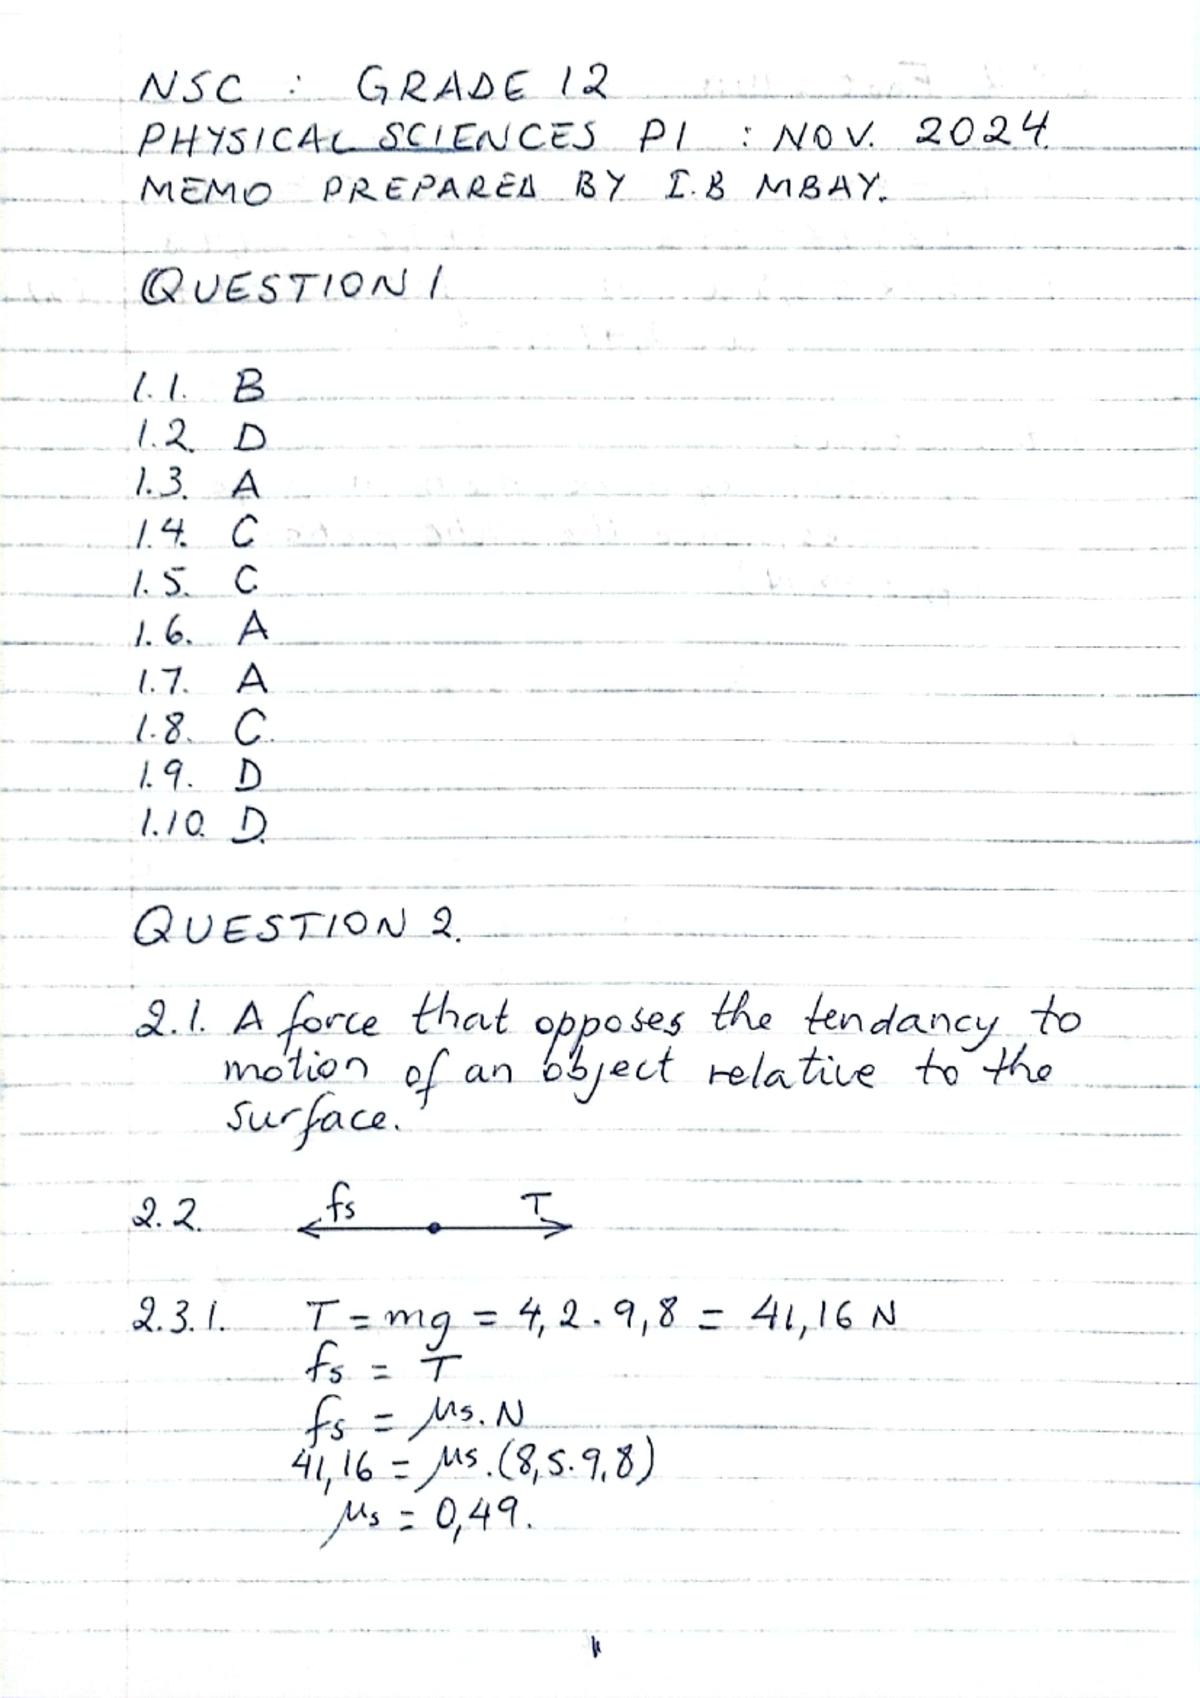 NSC : GRADE 12
PHYSICAL SCIENCES P1 : NOV. 2024.
MEMO PREPARED BY I.B MBAY.
QUESTION 1
1.1. B
1.2. D
1.3. A
1.4. C
1.5. C
1.6. A
1.7. A
1.8. C.
1.9. D
1.10. D.
QUESTION 2.
2.1. A force that opposes the tendancy to
motion of an object relative to the
surface.
2.2. fs T
2.3.1. T = mg = 4,2 . 9,8 = 41,16 N
fs = T
fs = μs. N
41,16 = μs . (8,5. 9,8)
μs = 0,49.